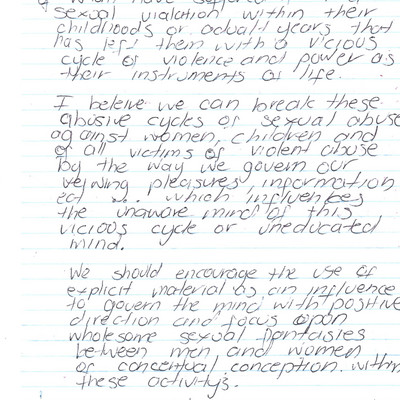 sexual violation within their
childhoods or actual years that
has left them with a vicious
cycle of violence and power as
their instruments of life.
I beleive we can break these
abusive cycles of sexual abuse
against women, children and
of all victims of violent abuse
by the way we govern our
veiwing pleasures, information
ect ... which influences
the unaware mind of this
vicious cycle or uneducated
mind.
We should encourage the use of
explicit material as an influence
to govern the mind with positive
direction and focus upon
wholesome sexual fantasies
between men and women
or conceitual conception within
these activitys.